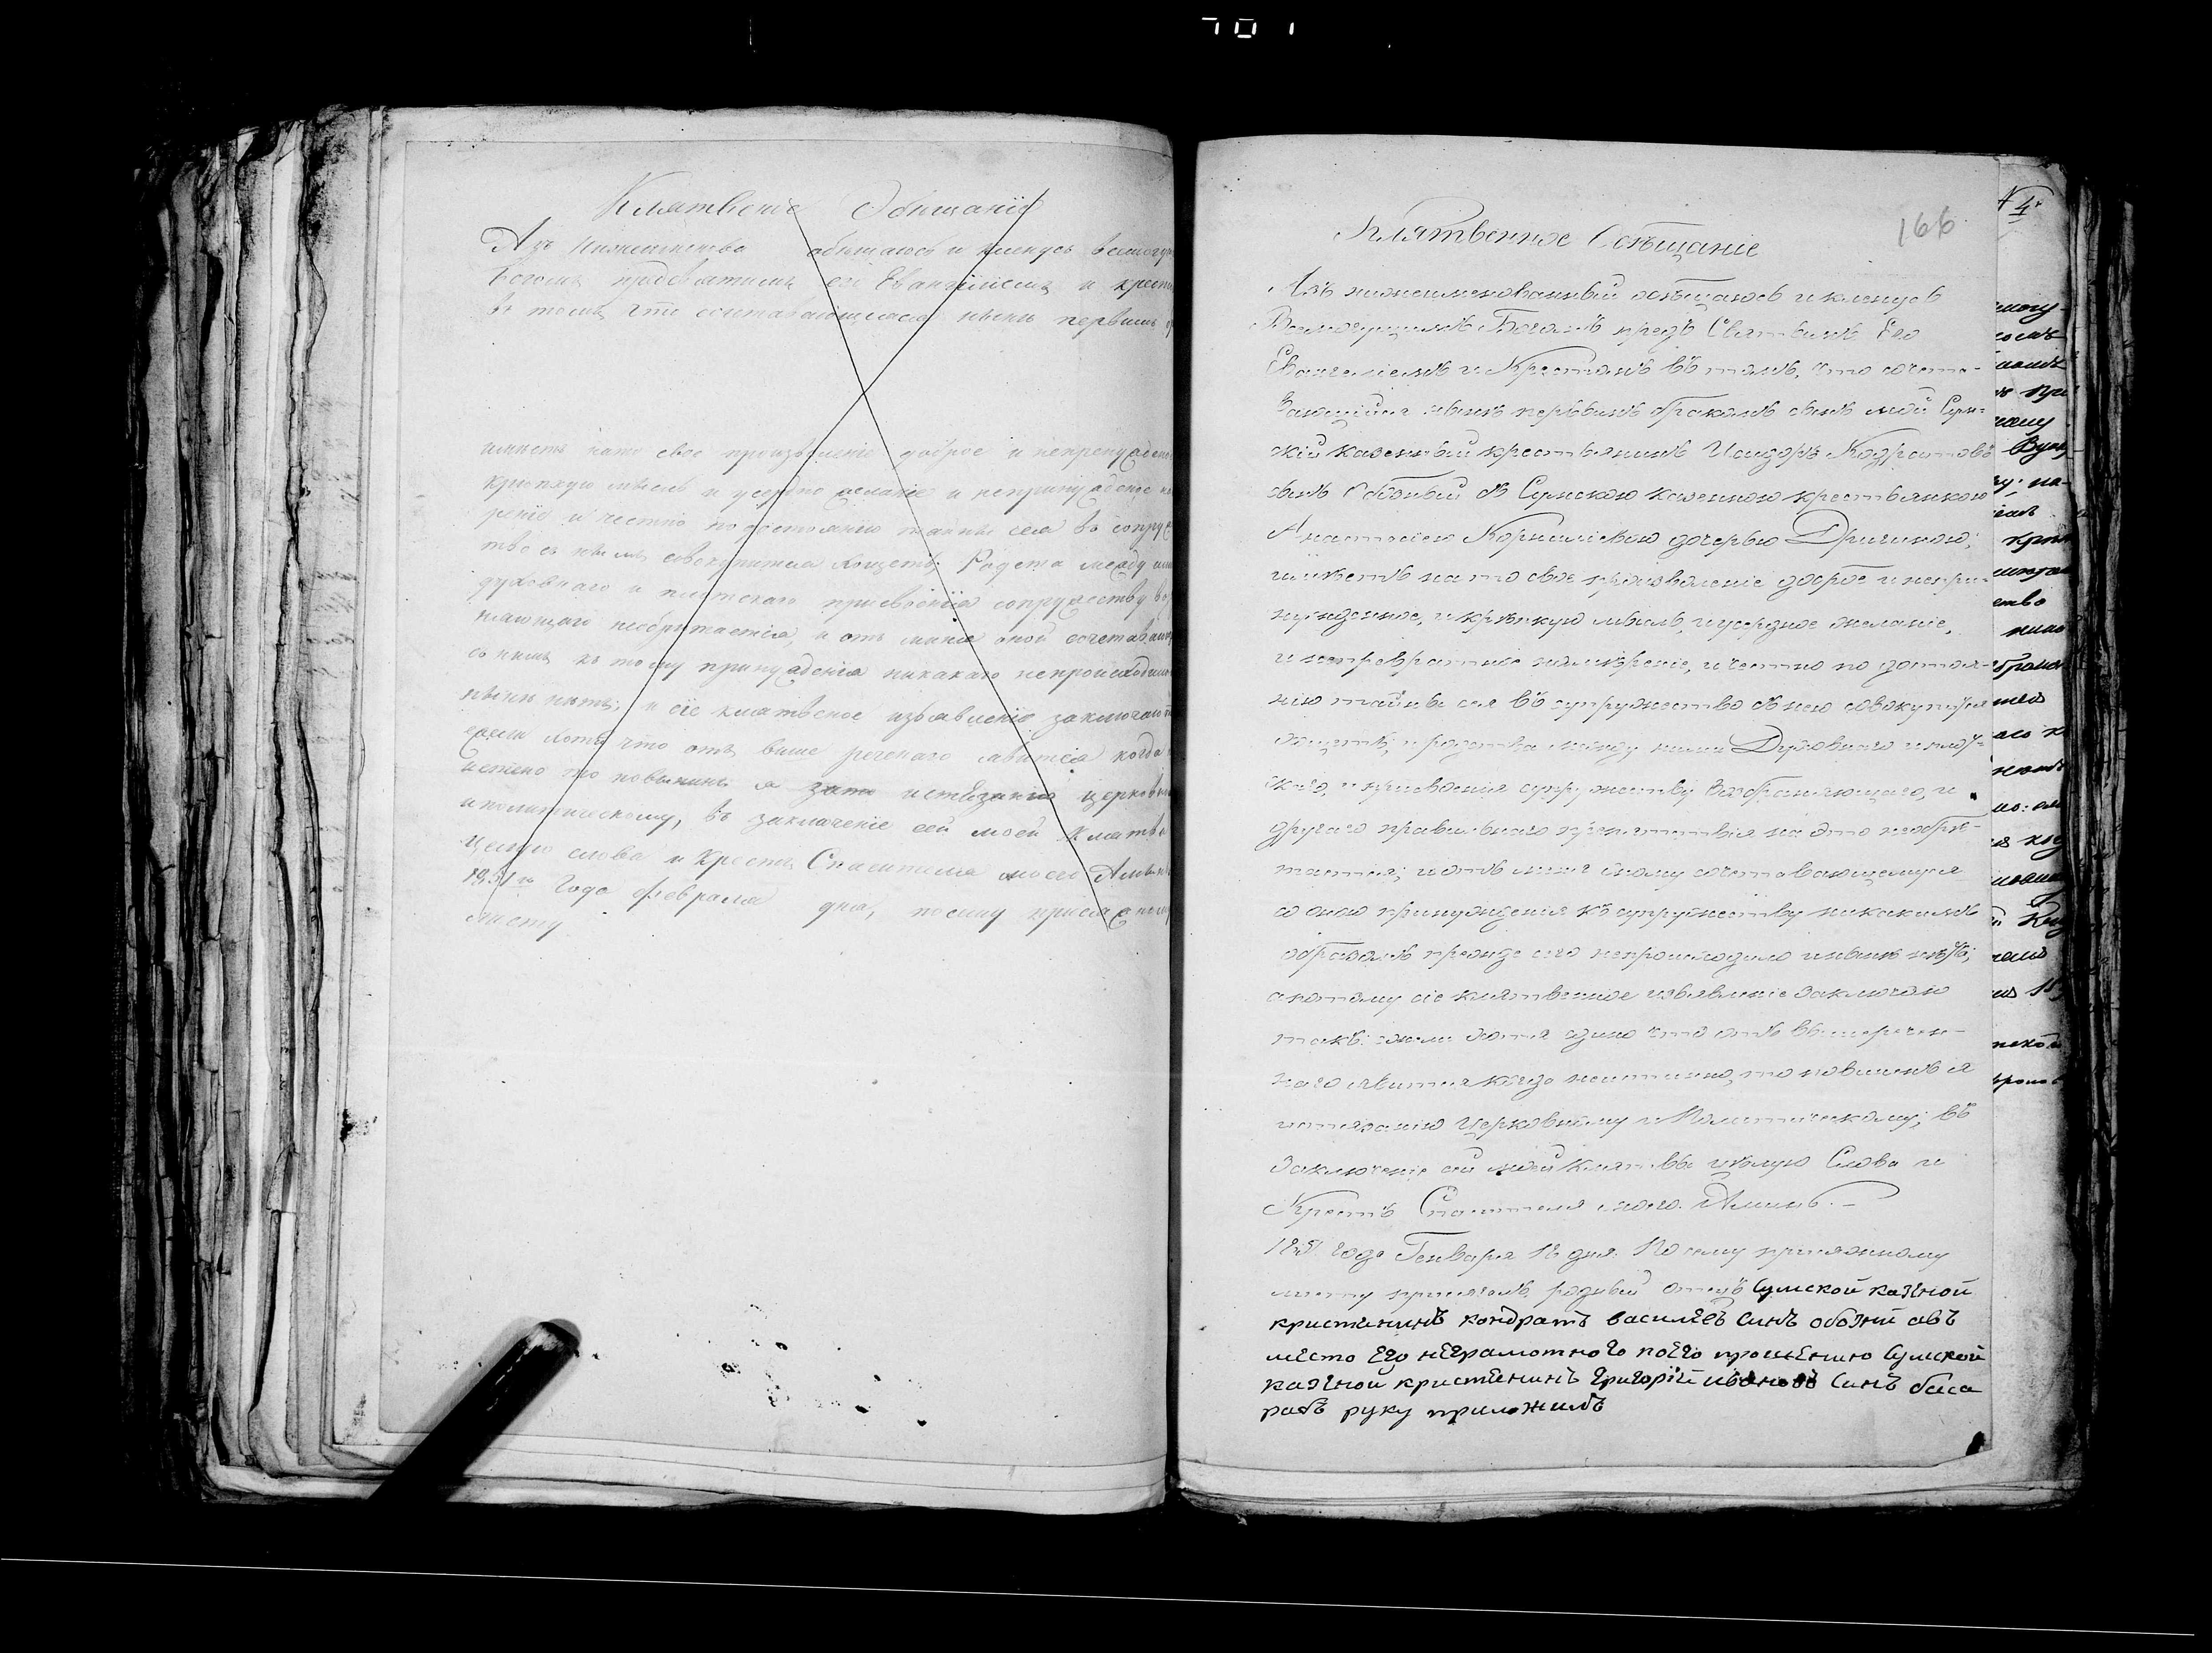 701
Клятвеное Обещаніе
Азъ Нижеимено обѣщаюсь и кленусь всемогу
Богомъ предсвятимъ его Евангеліемъ и кресто
въ томъ что сочетавающиеся нынѣ первымъ
имѣетъ нато свое произволеніе доброе и непренужден
крѣпкую мысль и усердно желаніе и непринужденое
реніе и честно по достоянію тайны сея въ сопруж
тво съ нимъ совокупитися хощетъ; Родства между ими
духовнаго и плотскаго присвоенія сопружеству во
няющаго необрѣтается, и отъ мене оной сочетаваю
съ нимъ къ тому принужденія никакаго непроисходило
нынѣ нѣтъ; и сіе клятвеное изъявленіе заключаю
ежели хотя что отъ выше реченаго явится когда
истено то повиненъ я зато истязанію церковн
иполитическому, въ заключеніе сей моей Клятвы
Целую слова и Крестъ Спасителя моего Аминь
1851го Года февраля дня, посему присяжном
листу
166
Клятвенное Обѣщаніе
Азъ нижеименованный обѣщаюсь и кленусь
Всемогущимъ Богомъ предъ Святымъ Его
Евангеліемъ и Крестомъ въ томъ, что сочета-
вающійся нынѣ первымъ бракомъ сынъ мой Сум-
скій казенный крестьянинъ Исидоръ Кодратовъ
сынъ Обозный съ Сумскою казенною крестьянкою
Анастасіею Корниліевою дочерью Дричиною;
имѣетъ на то свое произволеніе доброе и непри-
нужденное, и крѣпкую мысль, и усердное желаніе,
и непревратное намѣреніе, и честно по достоя-
нію тайны сея въ супружество съ нею совокупится
хощетъ, и родства между ними Духовнаго и плот-
скаго, и присвоенія супружеству возбраняющаго, и
другаго правильнаго препятствія на это необрѣ-
тается; и отъ мене оному сочетавающемуся
со оною принужденія къ супружеству никакимъ
образомъ прежде сего непроисходило и нынѣ нѣтъ;
а потому сіе клятвенное изъявленіе заключаю
такъ: ежели хотя едино что отъ вышеречен-
наго явится когда неистинно, то повиненъ я
истязанію Церковному и Политическому; въ
заключеніе сей моей клятвы цѣлую Слова и
Крестъ Спасителя моего. Аминь.—
1851 года Генваря 12 дня. По сему присяжному
листу присягалъ родный отецъ Сумской казеной
кристенинъ кондратъ василевъ синъ обозній авъ
место его неграмотного поего прошенію Сумской
казеной кристенинъ Григорій ивановъ Синъ баса
рабъ руку приложилъ
№ 4.